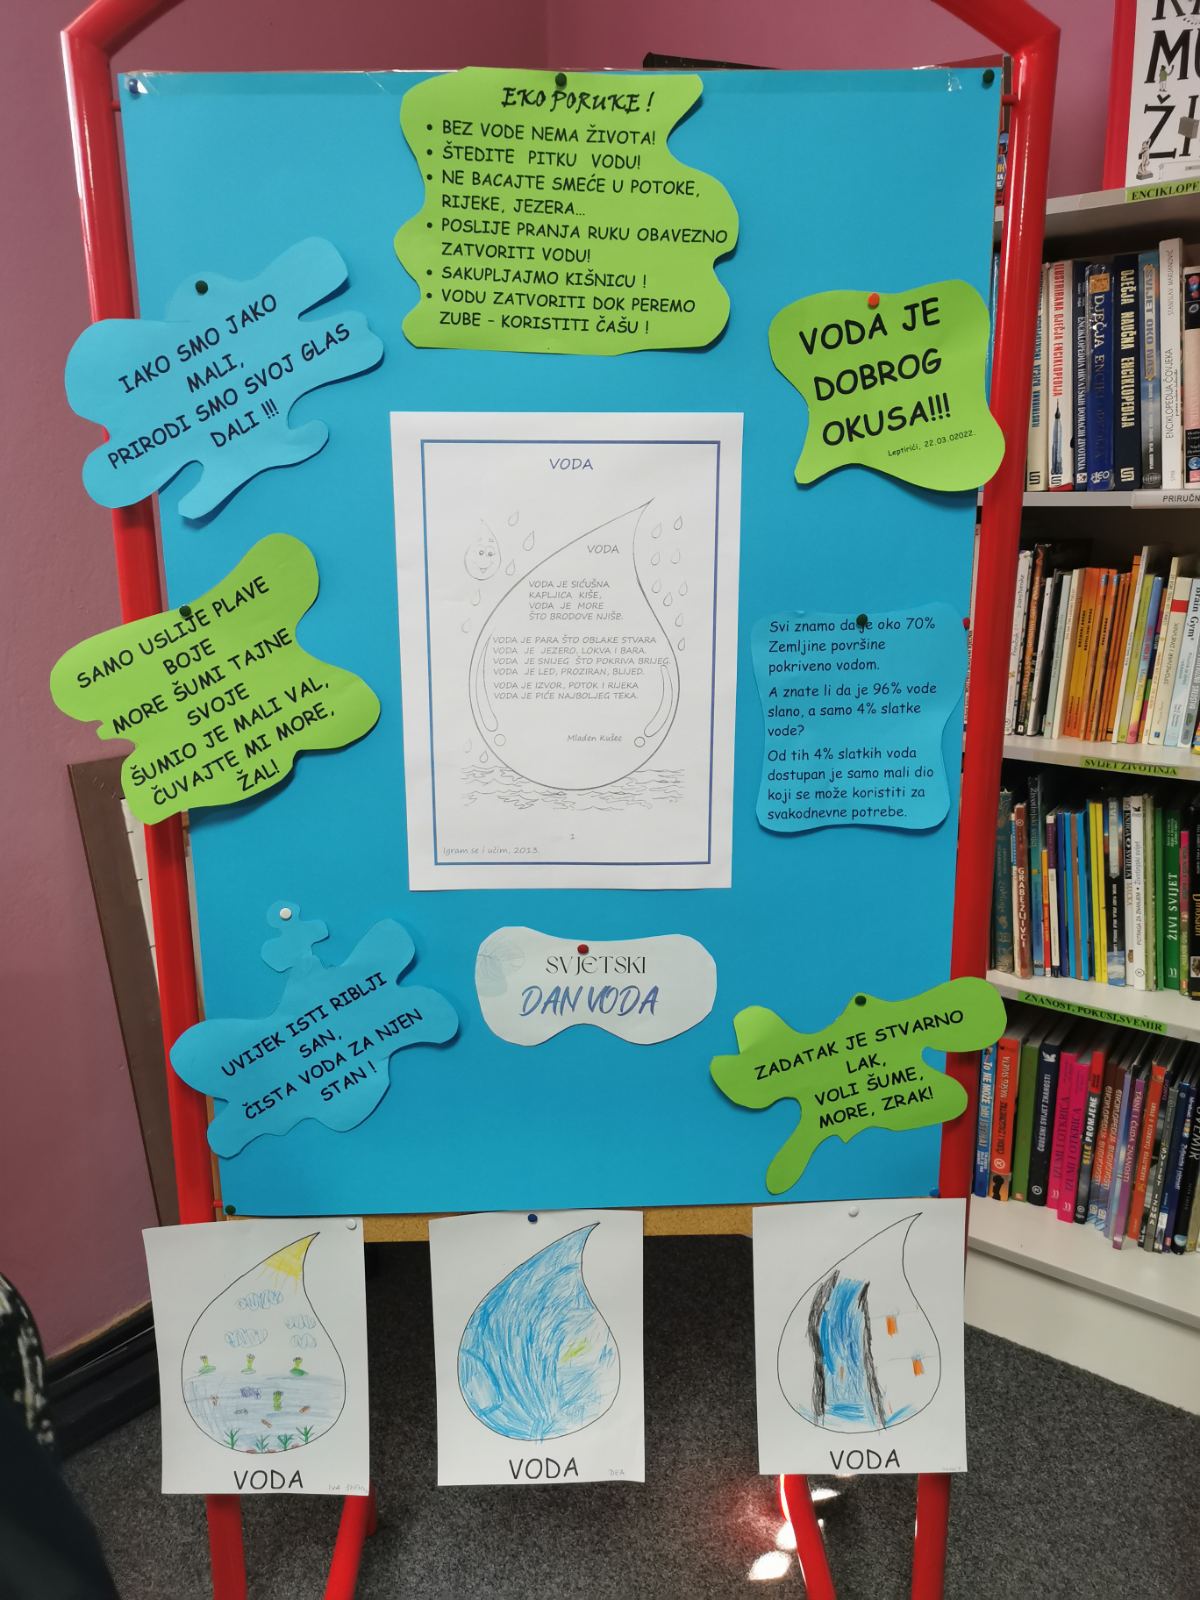 EKO PORUKE !
• BEZ VODE NEMA ŽIVOTA!
• ŠTEDITE PITKU VODU!
• NE BACAJTE SMEĆE U POTOKE,
RIJEKE, JEZERA...
• POSLIJE PRANJA RUKU OBAVEZNO
ZATVORITI VODU!
• SAKUPLJAJMO KIŠNICU !
• VODU ZATVORITI DOK PEREMO
ZUBE – KORISTITI ČAŠU !
IAKO SMO JAKO
MALI,
PRIRODI SMO SVOJ GLAS
DALI !!!
VODA JE
DOBROG
OKUSA!!!
Leptirići, 22.03.02022.
SAMO USLIJE PLAVE
BOJE
MORE ŠUMI TAJNE
SVOJE
ŠUMIO JE MALI VAL,
ČUVAJTE MI MORE,
ŽAL!
VODA
VODA
VODA JE SIĆUŠNA
KAPLJICA KIŠE,
VODA JE MORE
ŠTO BRODOVE NJIŠE.
VODA JE PARA ŠTO OBLAKE STVARA
VODA JE JEZERO, LOKVA I BARA.
VODA JE SNIJEG ŠTO POKRIVA BRIJEG.
VODA JE LED, PROZIRAN, BLIJED.
VODA JE IZVOR, POTOK I RIJEKA
VODA JE PIĆE NAJBOLJEG TEKA.
Mladen Kušec
1
Igram se i učim, 2013.
Svi znamo da je oko 70%
Zemljine površine
pokriveno vodom.
A znate li da je 96% vode
slano, a samo 4% slatke
vode?
Od tih 4% slatkih voda
dostupan je samo mali dio
koji se može koristiti za
svakodnevne potrebe.
UVIJEK ISTI RIBLJI
SAN,
ČISTA VODA ZA NJEN
STAN !
SVJETSKI
DAN VODA
ZADATAK JE STVARNO
LAK,
VOLI ŠUME,
MORE, ZRAK!
VODA
IVA
VODA
DEA
VODA
MU
ENCIKLOPE
ILUSTRIRANA DJEČJA ENCIKLOPEDIJA
DJEČJA ENCIK
DJEČJA NAUČNA ENCIKLOPEDIJA
SVIJET OKO NAS
ENCIKLOPEDIJA ČOVJEKA
PRIRUČN
Brain Gym
SVIJET ŽIVOTINJA
GRABEŽLJIVCI
ŽIVI SVIJET
ZNANOST, POKUSI, SVEMIR
IZUMI I OTKRIĆA
IZUMI I OTKRIĆA
SILE PRIRODE